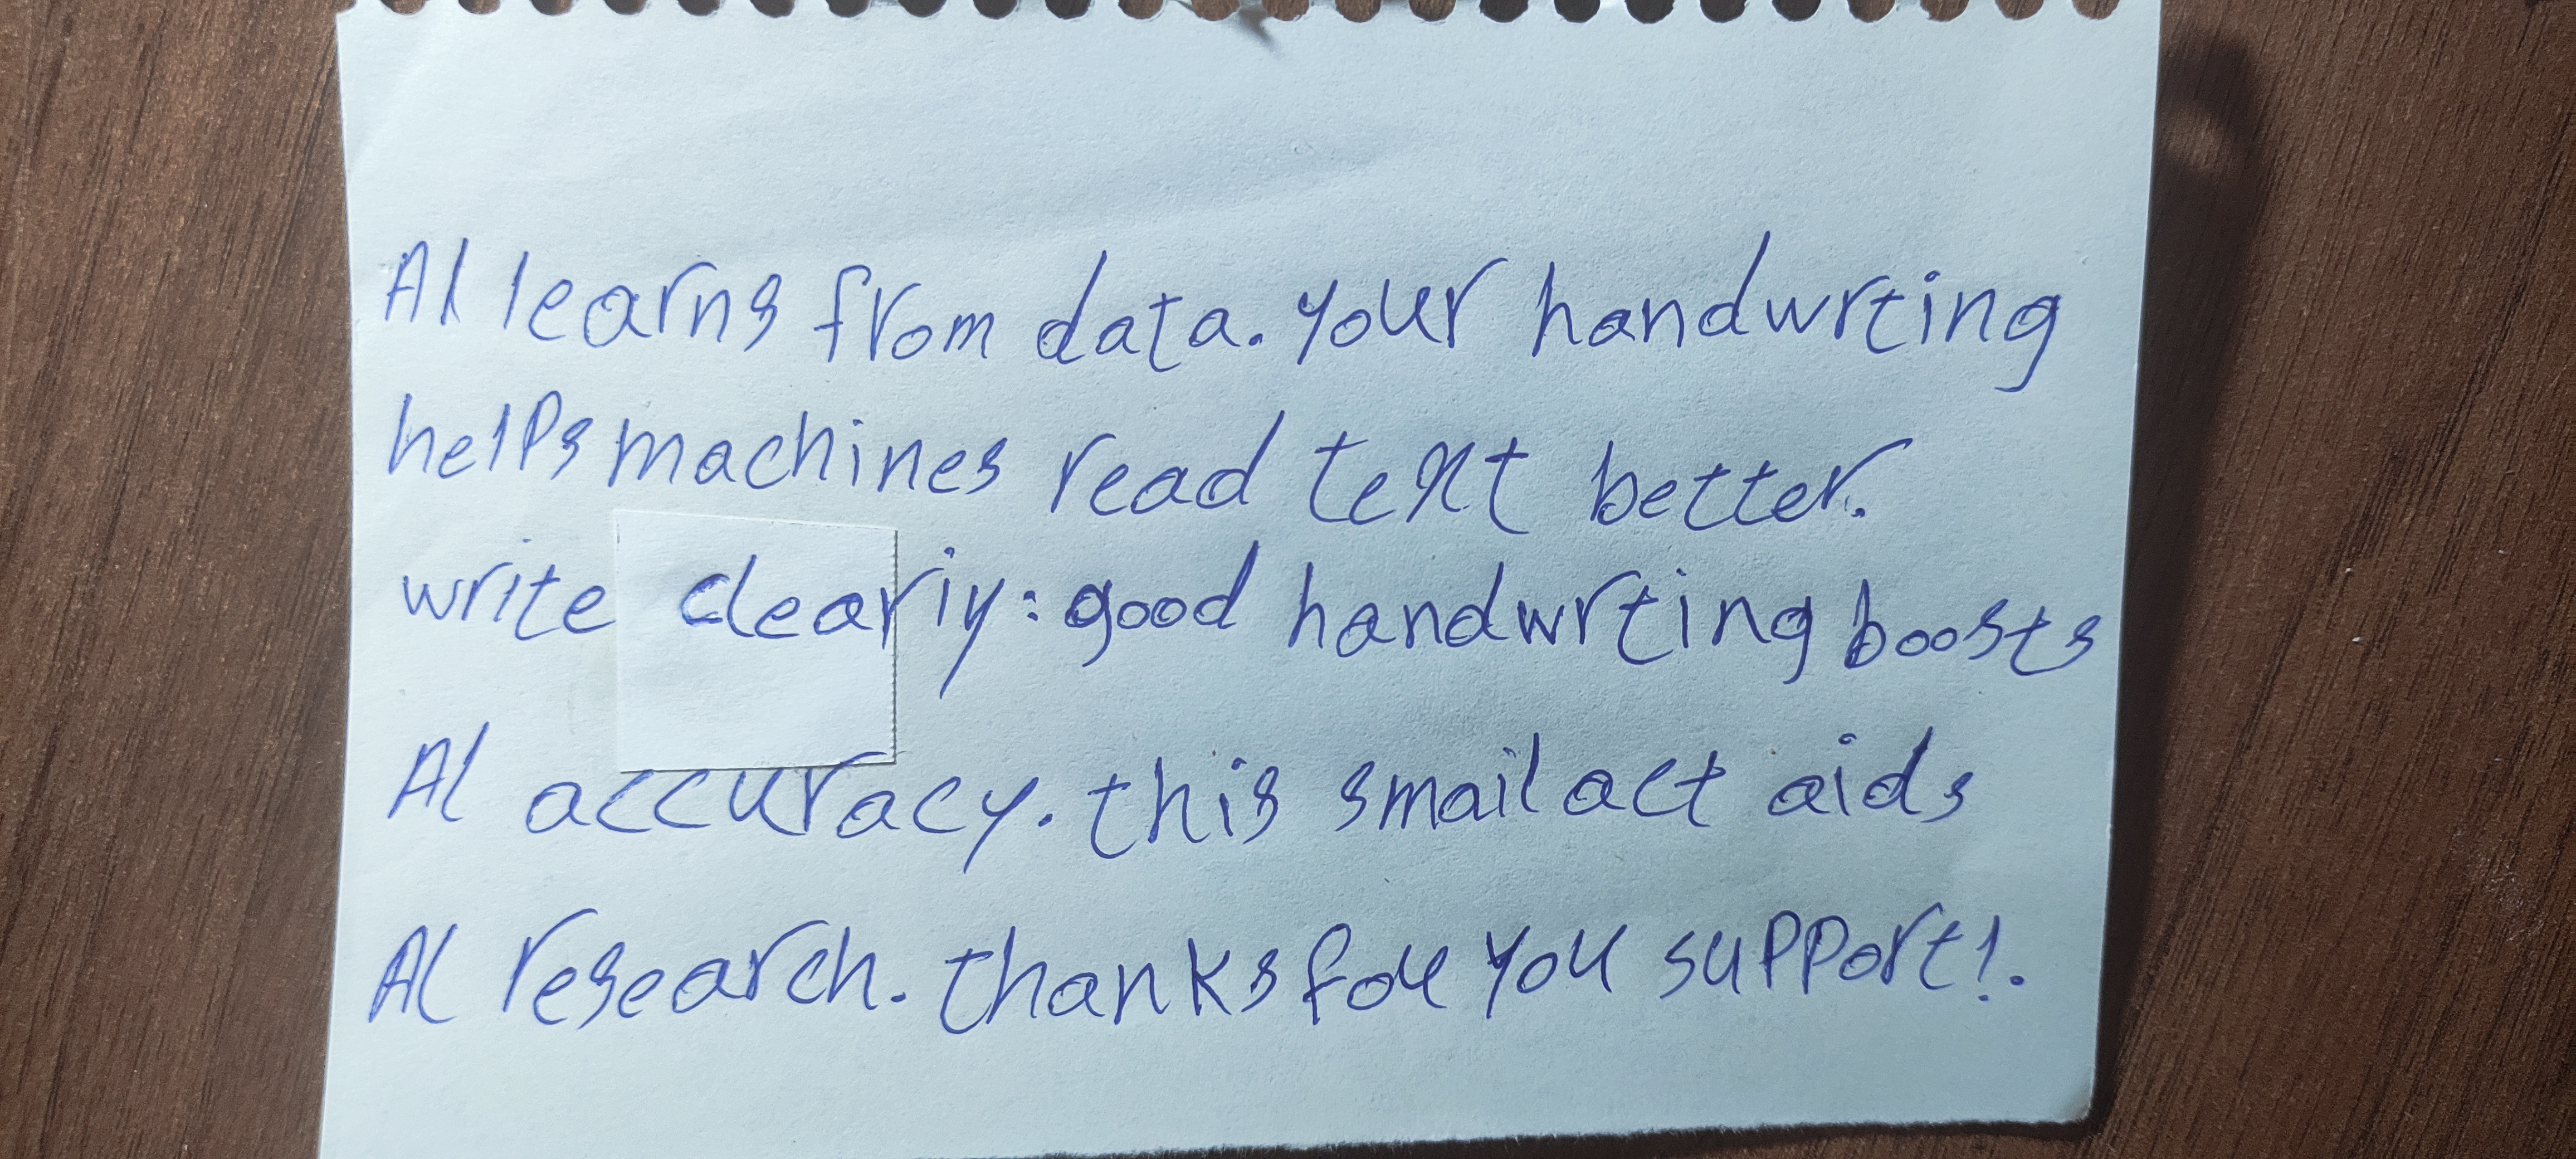 AI learns from data. your handwrting
helps machines read text better.
write cleariy: good handwrting boosts
AI accuracy. this smail act aids
AI research. thanks fou you support!.